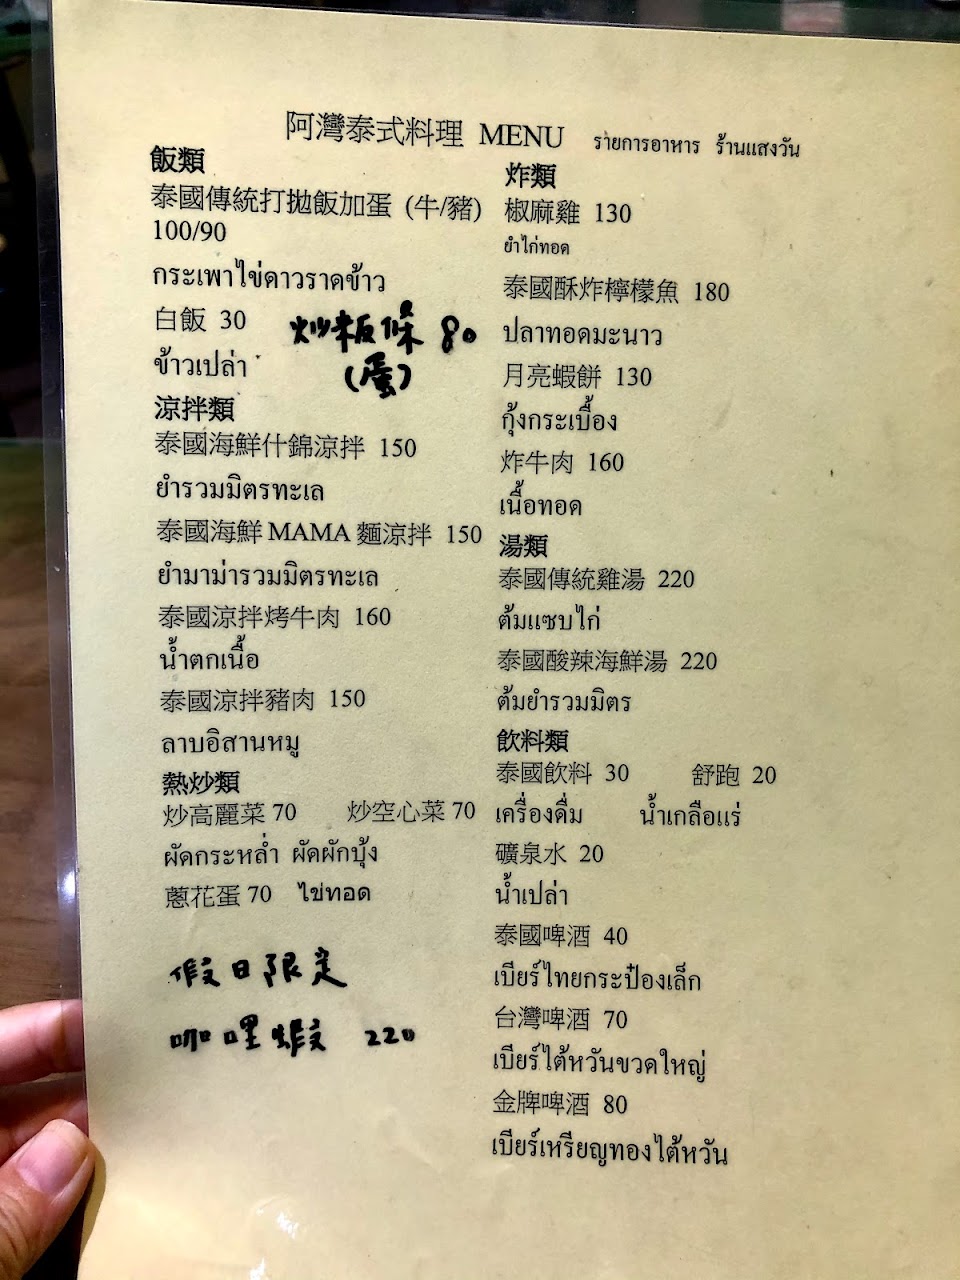 阿灣泰式料理 MENU รายการอาหาร ร้านแสงวัน
飯類
泰國傳統打拋飯加蛋 (牛/豬)
100/90
กระเพาไข่ดาวราดข้าว
白飯 30
炒粄條 80
(蛋)
ข้าวเปล่า
涼拌類
泰國海鮮什錦涼拌 150
ยำรวมมิตรทะเล
泰國海鮮 MAMA 麵涼拌 150
ยำมาม่ารวมมิตรทะเล
泰國涼拌烤牛肉 160
น้ำตกเนื้อ
泰國涼拌豬肉 150
ลาบอิสานหมู
熱炒類
炒高麗菜 70 炒空心菜 70
ผัดกระหล่ำ ผัดผักบุ้ง
蔥花蛋 70 ไข่ทอด
假日限定
咖哩蝦 220
炸類
椒麻雞 130
ยำไก่ทอด
泰國酥炸檸檬魚 180
ปลาทอดมะนาว
月亮蝦餅 130
กุ้งกระเบื้อง
炸牛肉 160
เนื้อทอด
湯類
泰國傳統雞湯 220
ต้มแซบไก่
泰國酸辣海鮮湯 220
ต้มยำรวมมิตร
飲料類
泰國飲料 30 舒跑 20
เครื่องดื่ม น้ำเกลือแร่
礦泉水 20
น้ำเปล่า
泰國啤酒 40
เบียร์ไทยกระป๋องเล็ก
台灣啤酒 70
เบียร์ไต้หวันขวดใหญ่
金牌啤酒 80
เบียร์เหรียญทองไต้หวัน